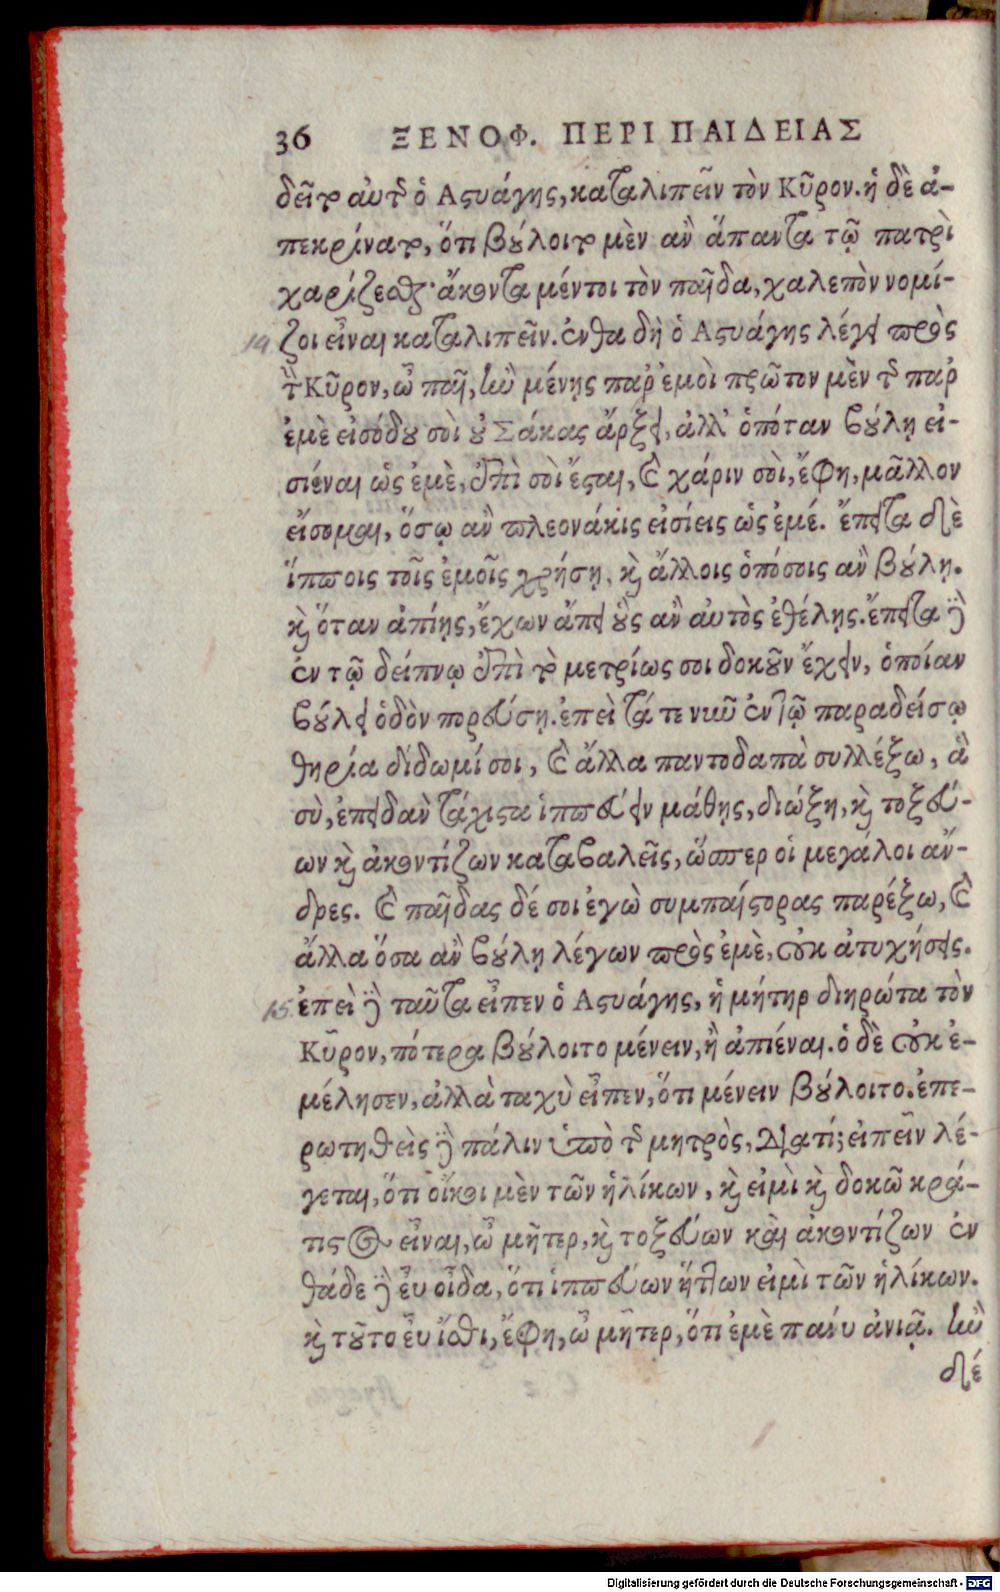 36 ΞΕΝΟΦ. ΠΕΡΙ ΠΑΙΔΕΙΑΣ
δεῖται αὐτῆς ὁ Αστυάγης, καταλιπεῖν τὸν Κῦρον. ἡ δὲ ἀ-
πεκρίνατο, ὅτι βούλοιτο μὲν ἂν ἅπαντα τῷ πατρὶ
χαρίζεσθαι· ἄκοντα μέντοι τὸν παῖδα, χαλεπὸν νομί-
14 ζοι εἶναι καταλιπεῖν. ἐνθα δὴ ὁ Αστυάγης λέγει πρὸς
τὸν Κῦρον, ὦ παῖ, ἢν μένῃς παρ' ἐμοὶ πρῶτον μὲν τῆς παρ'
ἐμὲ εἰσόδου σοὶ οὐ Σάκας ἄρξει, ἀλλ' ὁπόταν βούλῃ εἰ-
σιέναι ὡς ἐμὲ, ἐπὶ σοὶ ἔσται, καὶ χάριν σοὶ, ἔφη, μᾶλλον
εἴσομαι, ὅσῳ ἂν πλεονάκις εἰσίεις ὡς ἐμέ. ἔπειτα δὲ
ἵπποις τοῖς ἐμοῖς χρήσῃ, καὶ ἄλλοις ὁπόσοις ἂν βούλῃ.
καὶ ὅταν ἀπίῃς, ἔχων ἄπει οὓς ἂν αὐτὸς ἐθέλῃς. ἔπειτα δὲ
ἐν τῷ δείπνῳ ἐπὶ τὸ μετρίως σοι δοκοῦν ἔχειν, ὁποίαν
βούλει ὁδὸν πορεύσῃ. ἐπεὶ τά τε νῦν ἐν τῷ παραδείσῳ
θηρία δίδωμί σοι, καὶ ἄλλα παντοδαπὰ συλλέξω, ἃ
σὺ, ἐπειδὰν τάχιστα ἱππεύειν μάθῃς, διώξῃ, καὶ τοξεύ-
ων καὶ ἀκοντίζων καταβαλεῖς, ὥσπερ οἱ μεγάλοι ἄν-
δρες. καὶ παῖδας δέ σοι ἐγὼ συμπαίστορας παρέξω, καὶ
ἄλλα ὅσα ἂν βούλῃ λέγων πρὸς ἐμὲ, οὐκ ἀτυχήσεις.
15. ἐπεὶ δὲ ταῦτα εἶπεν ὁ Αστυάγης, ἡ μήτηρ διηρώτα τὸν
Κῦρον, πότερα βούλοιτο μένειν, ἢ ἀπιέναι. ὁ δὲ οὐκ ἐ-
μέλησεν, ἀλλὰ ταχὺ εἶπεν, ὅτι μένειν βούλοιτο. ἐπε-
ρωτηθεὶς δὲ πάλιν ὑπὸ τῆς μητρὸς, Διατί; εἰπεῖν λέ-
γεται, ὅτι οἴκοι μὲν τῶν ἡλίκων, καὶ εἰμὶ καὶ δοκῶ κρά-
τιστος εἶναι, ὦ μῆτερ, καὶ τοξεύων καὶ ἀκοντίζων ἐν
θάδε δὲ εὖ οἶδα, ὅτι ἱππεύων ἥττων εἰμὶ τῶν ἡλίκων.
καὶ τοῦτο εὖ ἴσθι, ἔφη, ὦ μῆτερ, ὅτι ἐμὲ πάνυ ἀνιᾷ. ἢν
δέ
Digitalisierung gefördert durch die Deutsche Forschungsgemeinschaft - DFG